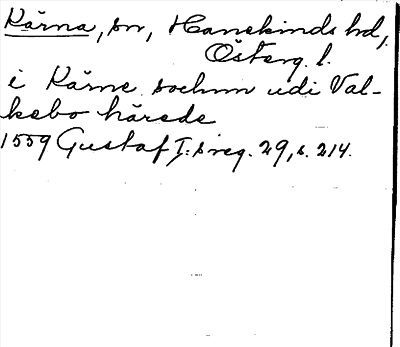 Kärna, sn, Hanekinds hd,
Österg. l.
i Kärne sochnn udi Val-
kebo härede
1559 Gustaf I:s reg. 29, s. 214.